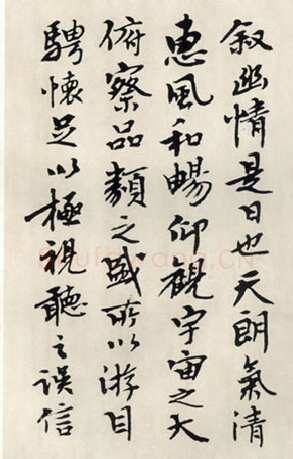 叙幽情是日也天朗氣清
惠風和暢仰觀宇宙之大
俯察品類之盛所以游目
騁懷足以極視聽之娛信